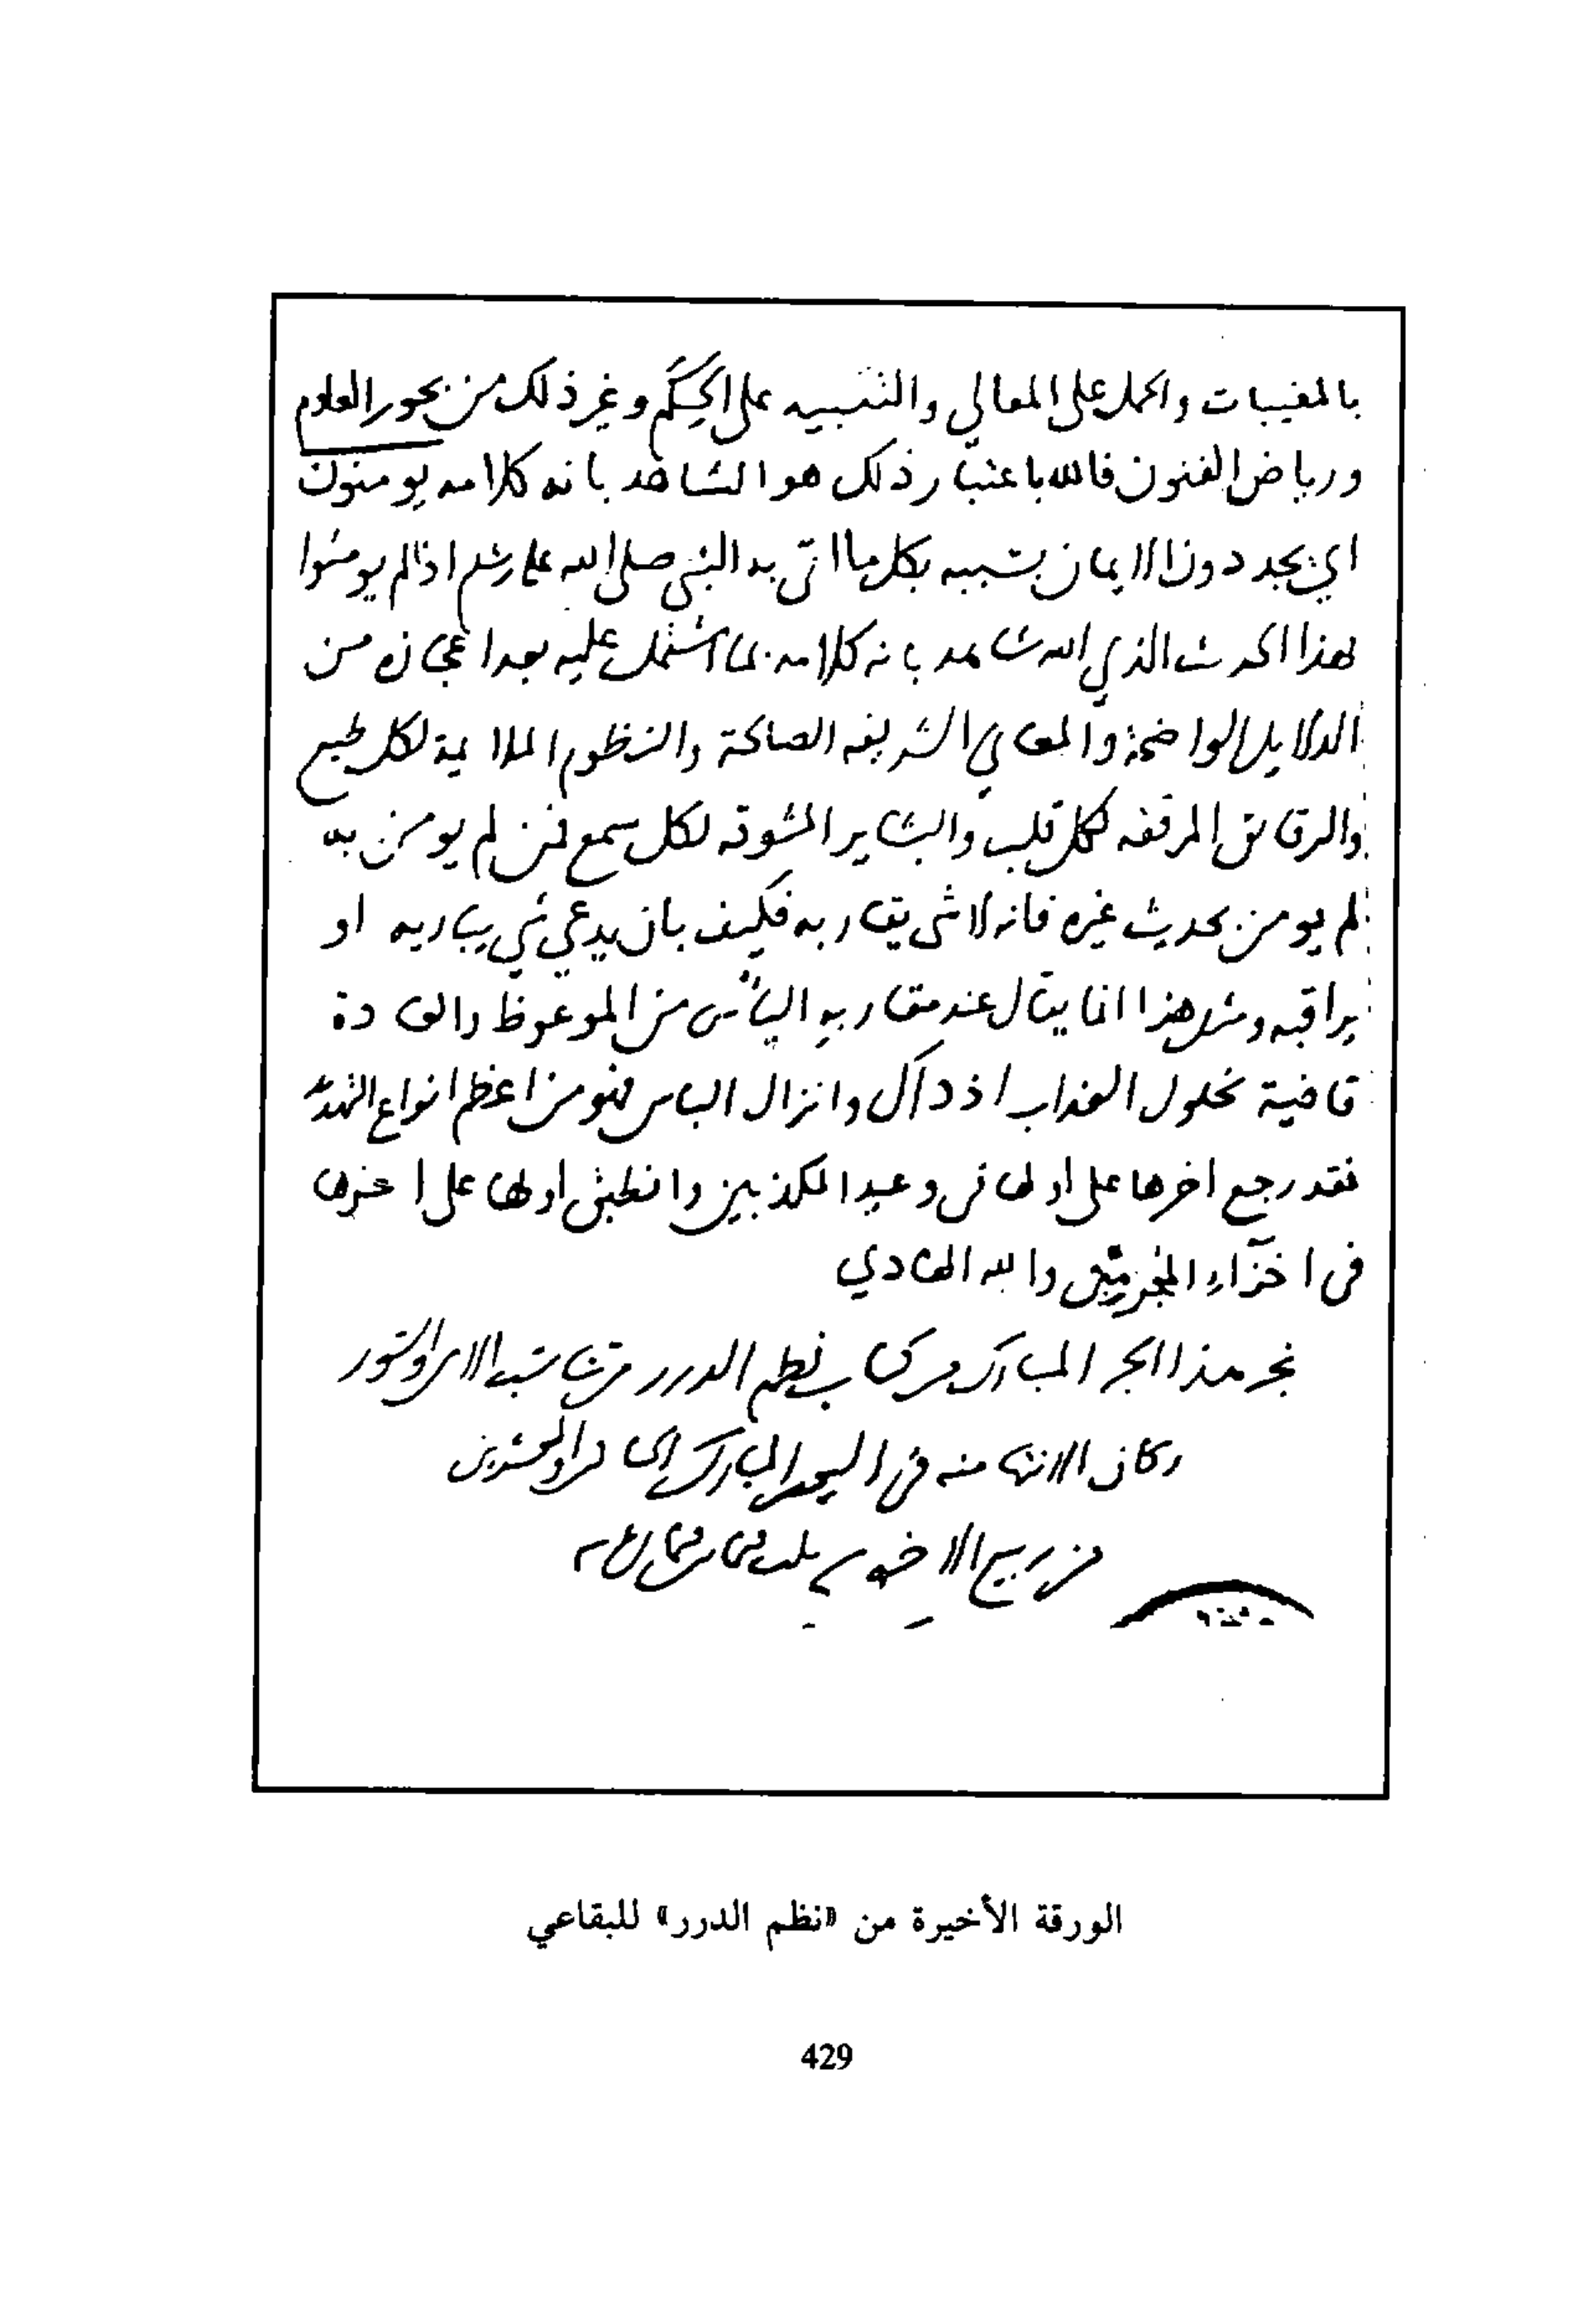 بالمغيبات والحمل على المعالي والتنبيه على الحِكَم وغير ذلك من بحور العلوم
ورياض الفنون فالله باعتبار ذلك هو الشاهد بانه كلامه يومنون
اي يجددون الايمان بسببه بكل ما اتى به النبي صلى الله عليه وسلم اذا لم يومنوا
بهذا الحديث الذي الله شاهد بانه كلامه بما اشتمل عليه بعد اعجازه من
الدلايل الواضحة والمعاني الشريفه الصالحة والنظوم الملايمة لكل طبع
والرقايق المرققه لكل قلب والبشاير المشوقه لكل سمع فمن لم يومن به
لم يومن بحديث غيره فانه لا شى يقاربه فكيف بان يدعي شي يباريه او
يراقبه ومثل هذا انما يقال عند مقاربه اليأس من الموعوظ والعادة
قاضية بحلول العذاب اذ ذاك وانزال الباس فهو من اعظم انواع التهديد
فقد رجع اخرها على اولها فى وعيد المكذبين وانطبق اولها على اخرها
فى اخزاء المجرمين والله الهادي
نجز هذا الجز المبارك من كتاب نظم الدرر من تناسب الاي والسور
وكان الانتها منه في اليوم المبارك الحادي والعشرين
من ربيع الاخر
الورقة الأخيرة من «نظم الدرر» للبقاعي
429